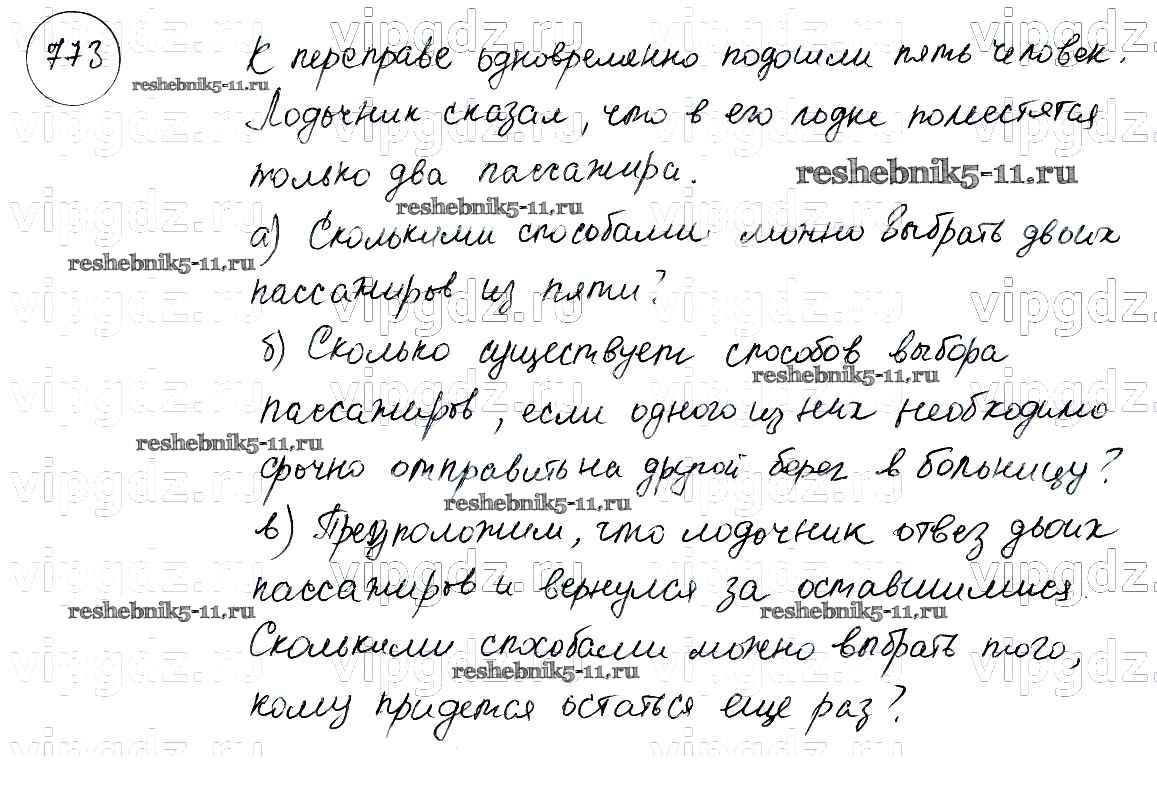 773
К переправе одновременно подошли пять человек.
Лодочник сказал, что в его лодке поместятся
только два пассажира.
а) Сколькими способами можно выбрать двоих
пассажиров из пяти?
б) Сколько существует способов выбора
пассажиров, если одного из них необходимо
срочно отправить на другой берег в больницу?
в) Предположим, что лодочник отвез двоих
пассажиров и вернулся за оставшимися.
Сколькими способами можно выбрать того,
кому придется остаться еще раз?
reshebnik5-11.ru
vipgdz.ru